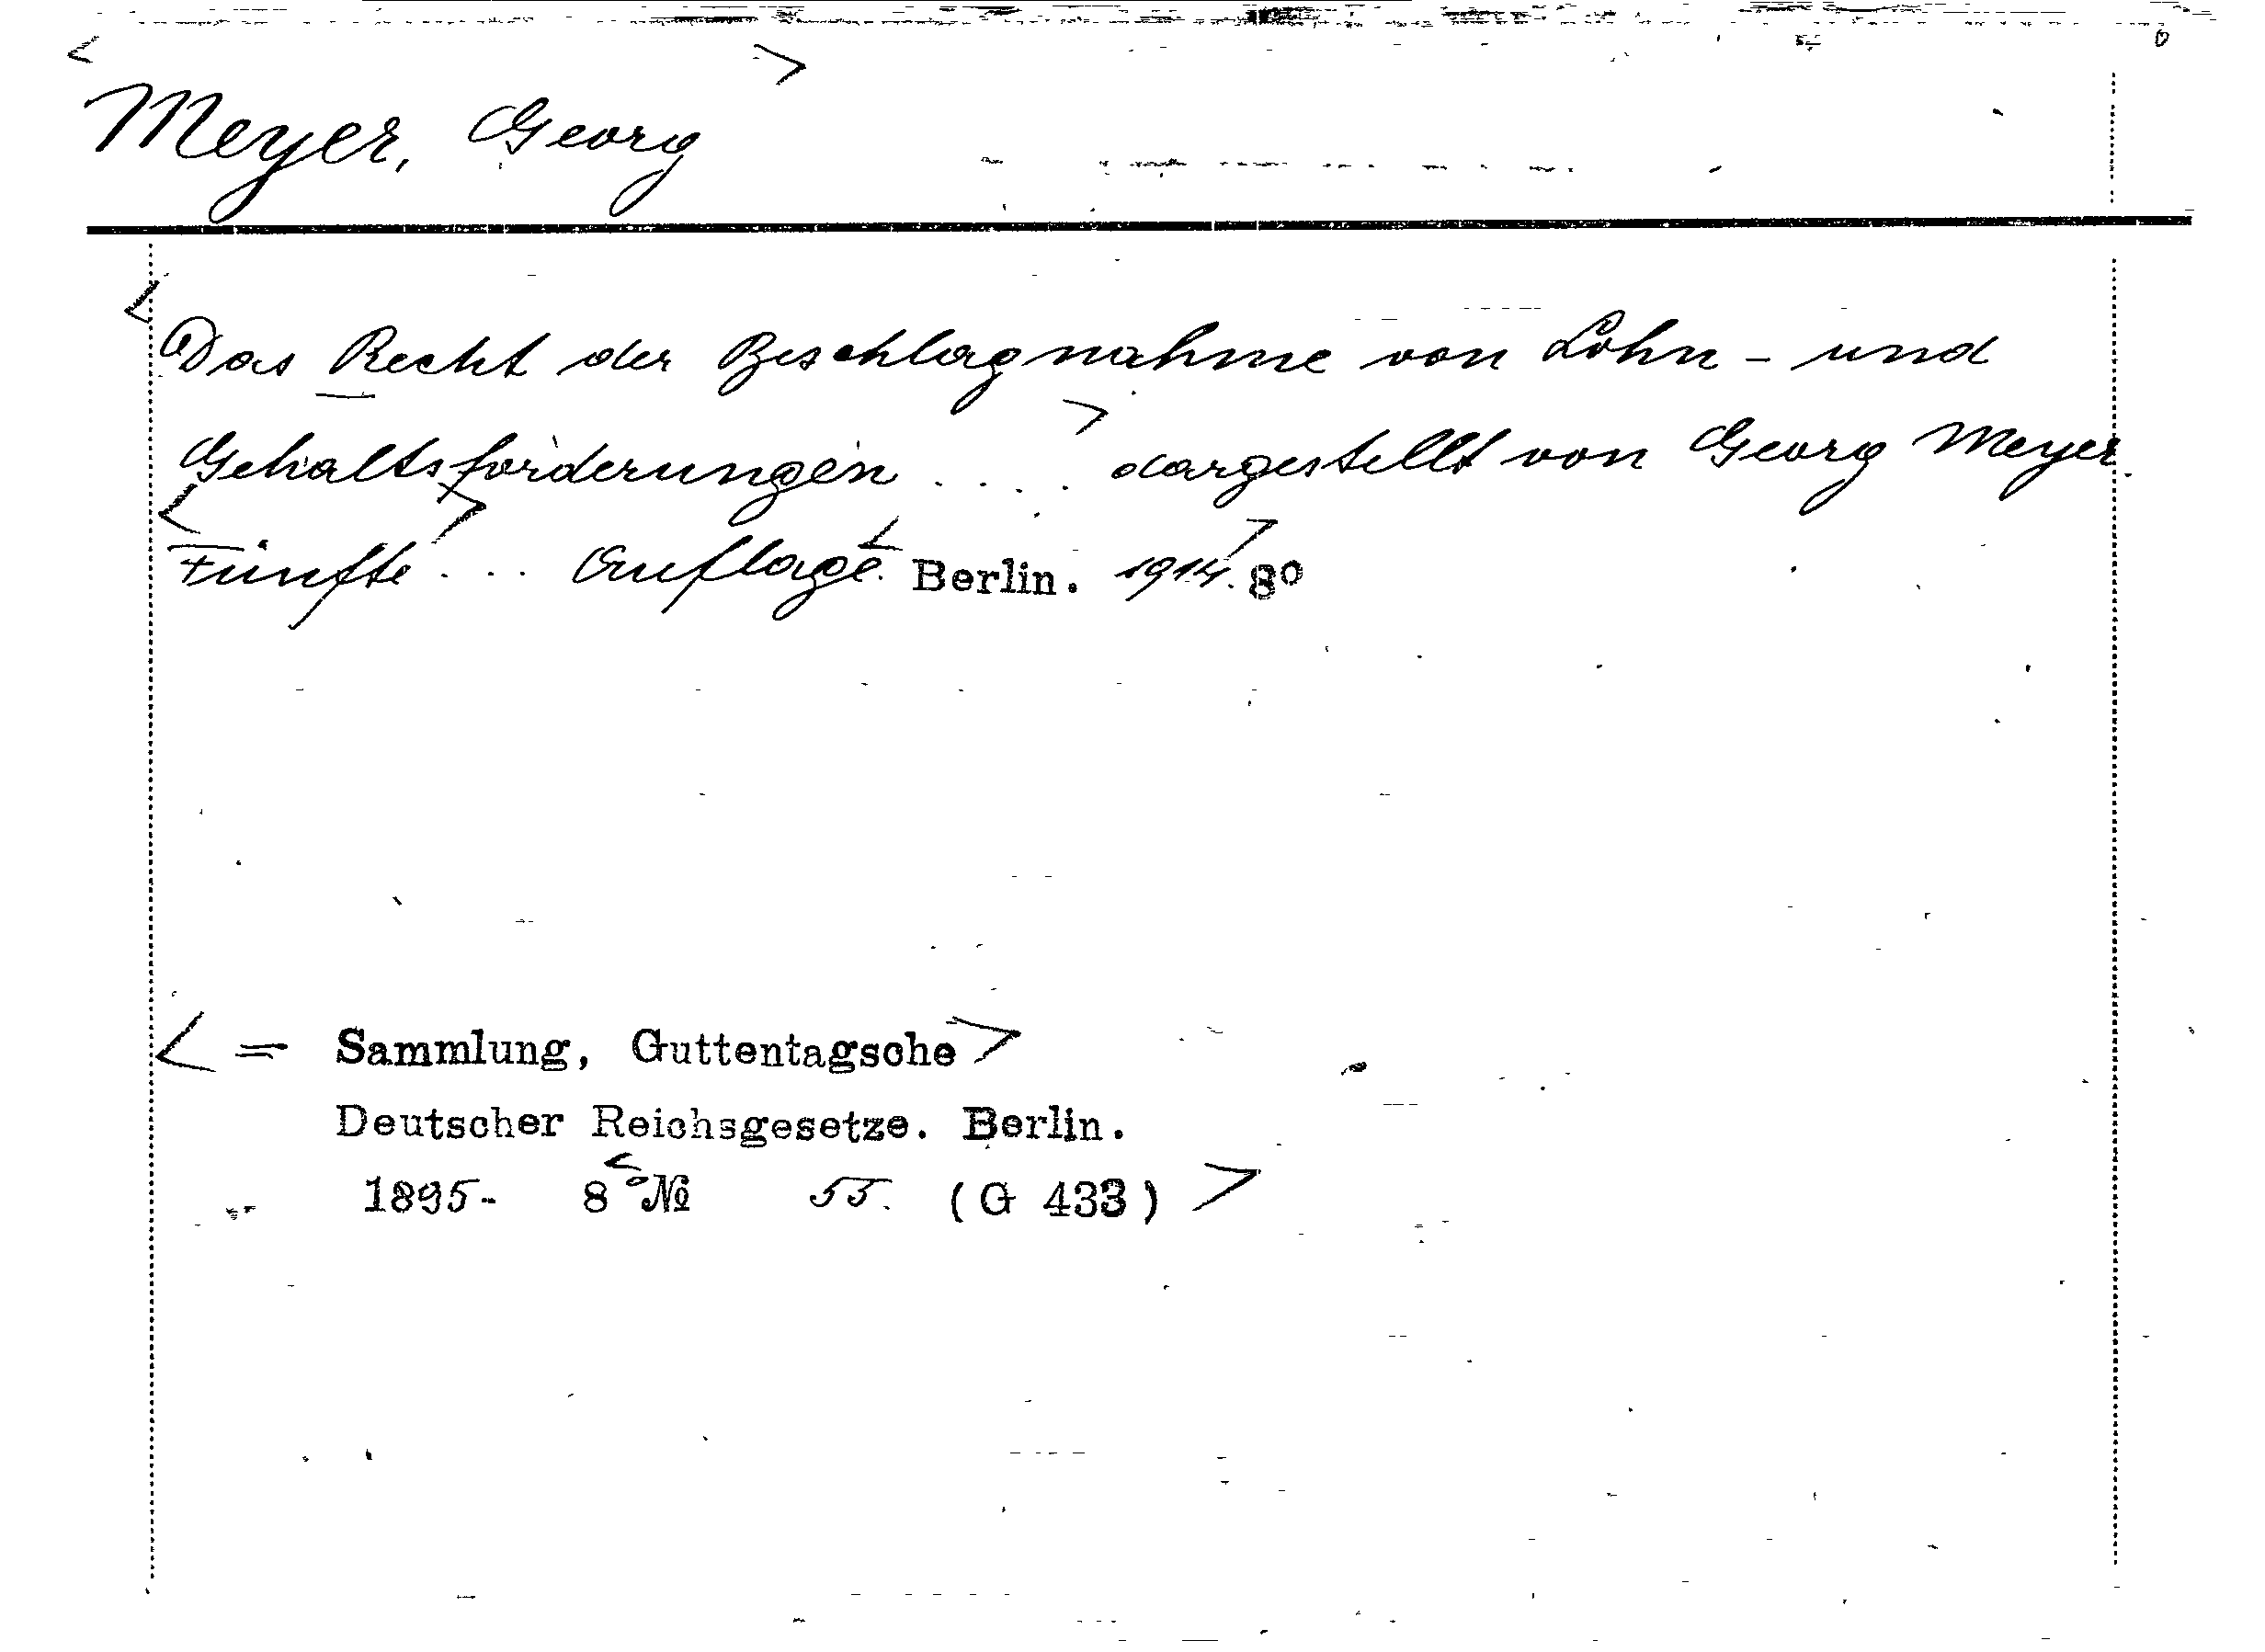 < >
Meyer, Georg
<Das Recht der Beschlagnahme von Lohn- und
Gehaltsforderungen ....> dargestellt von Georg Meyer.
<Fünfte> ... Auflage. <Berlin. 1914.> 8°
<= Sammlung, Guttentagsche>
Deutscher Reichsgesetze. Berlin.
1895- 8° <№ 55. (G 433)>